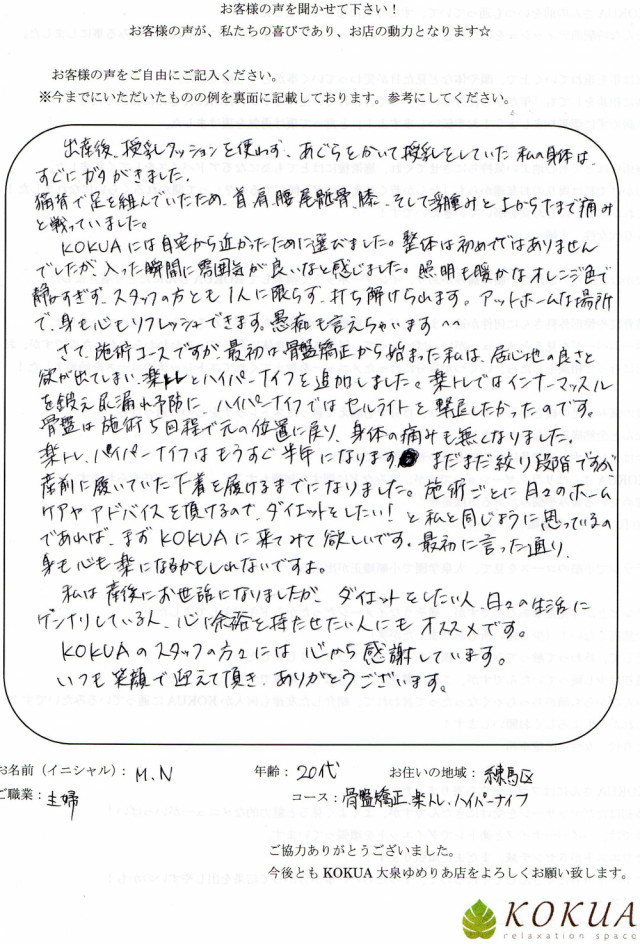 お客様の声を聞かせて下さい！
お客様の声が、私たちの喜びであり、お店の動力となります☆
お客様の声をご自由にご記入ください。
※今までにいただいたものの例を裏面に記載しております。参考にしてください。
出産後、授乳クッションを使わず、あぐらをかいて授乳をしていた私の身体は、
すぐにガタがきました。
猫背で足を組んでいたため、首、肩、腰、尾骶骨、膝、そして浮腫みと上から下まで痛み
と戦っていました。
KOKUAには自宅から近かったために選びました。整体は初めてではありません
でしたが、入った瞬間に雰囲気が良いなと感じました。照明も暖かなオレンジ色で
静かすぎず、スタッフの方とも1人に限らず、打ち解けられます。アットホームな場所
で、身も心もリフレッシュできます。愚痴も言えちゃいます^^
さて、施術コースですが、最初は骨盤矯正から始まった私は、居心地の良さと
欲が出てしまい、楽トレとハイパーナイフを追加しました。楽トレではインナーマッスル
を鍛え尿漏れ予防に、ハイパーナイフではセルライトを撃退したかったのです。
骨盤は施術5回程で元の位置に戻り、身体の痛みも無くなりました。
楽トレ、ハイパーナイフはもうすぐ半年になります。まだまだ絞り段階ですが
産前に履いていた下着を履けるまでになりました。施術ごとに日々のホーム
ケアやアドバイスを頂けるので、ダイエットをしたい！と私と同じように思っているの
であれば、まずKOKUAに来てみて欲しいです。最初に言った通り、
身も心も楽になるかもしれないですよ。
私は産後にお世話になりましたが、ダイエットをしたい人、日々の生活に
ゲンナリしている人、心に余裕を持たせたい人にもオススメです。
KOKUAのスタッフの方々には心から感謝しています。
いつも笑顔で迎えて頂き、ありがとうございます。
お名前（イニシャル）：M.N 年齢：20代 お住いの地域：練馬区
ご職業：主婦 コース：骨盤矯正、楽トレ、ハイパーナイフ
ご協力ありがとうございました。
今後とも KOKUA 大泉ゆめりあ店をよろしくお願い致します。
KOKUA
relaxation space